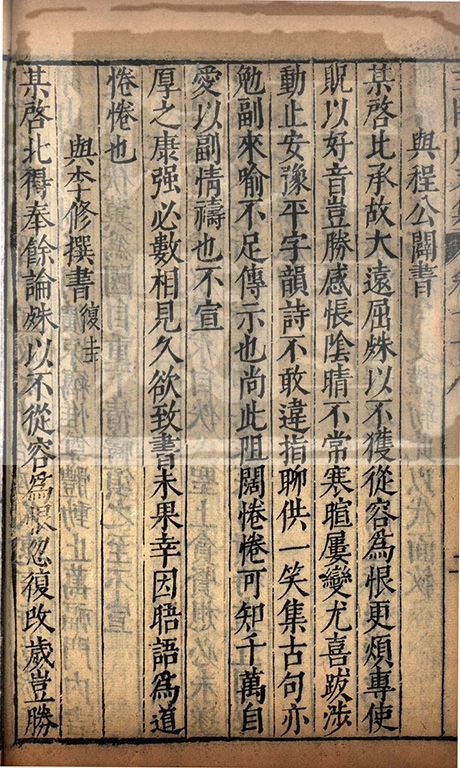 與程公闢書
某啓比承故大遠屈姝以不獲從容為恨更煩專使
貺以好音豈勝感悵陰晴不常寒暄屢變尤喜跋涉
動止安豫平字韻詩不敢違指聊供一笑集古句亦
勉副來喻不足傳示也尚此阻闊惓惓可知千萬自
愛以副情禱也不宣
厚之康强必數相見久欲致書未果幸因晤語爲道
惓惓也
與李修撰書復圭
某啓北得奉餘論姝以不從容爲恨忽復改歲豈勝